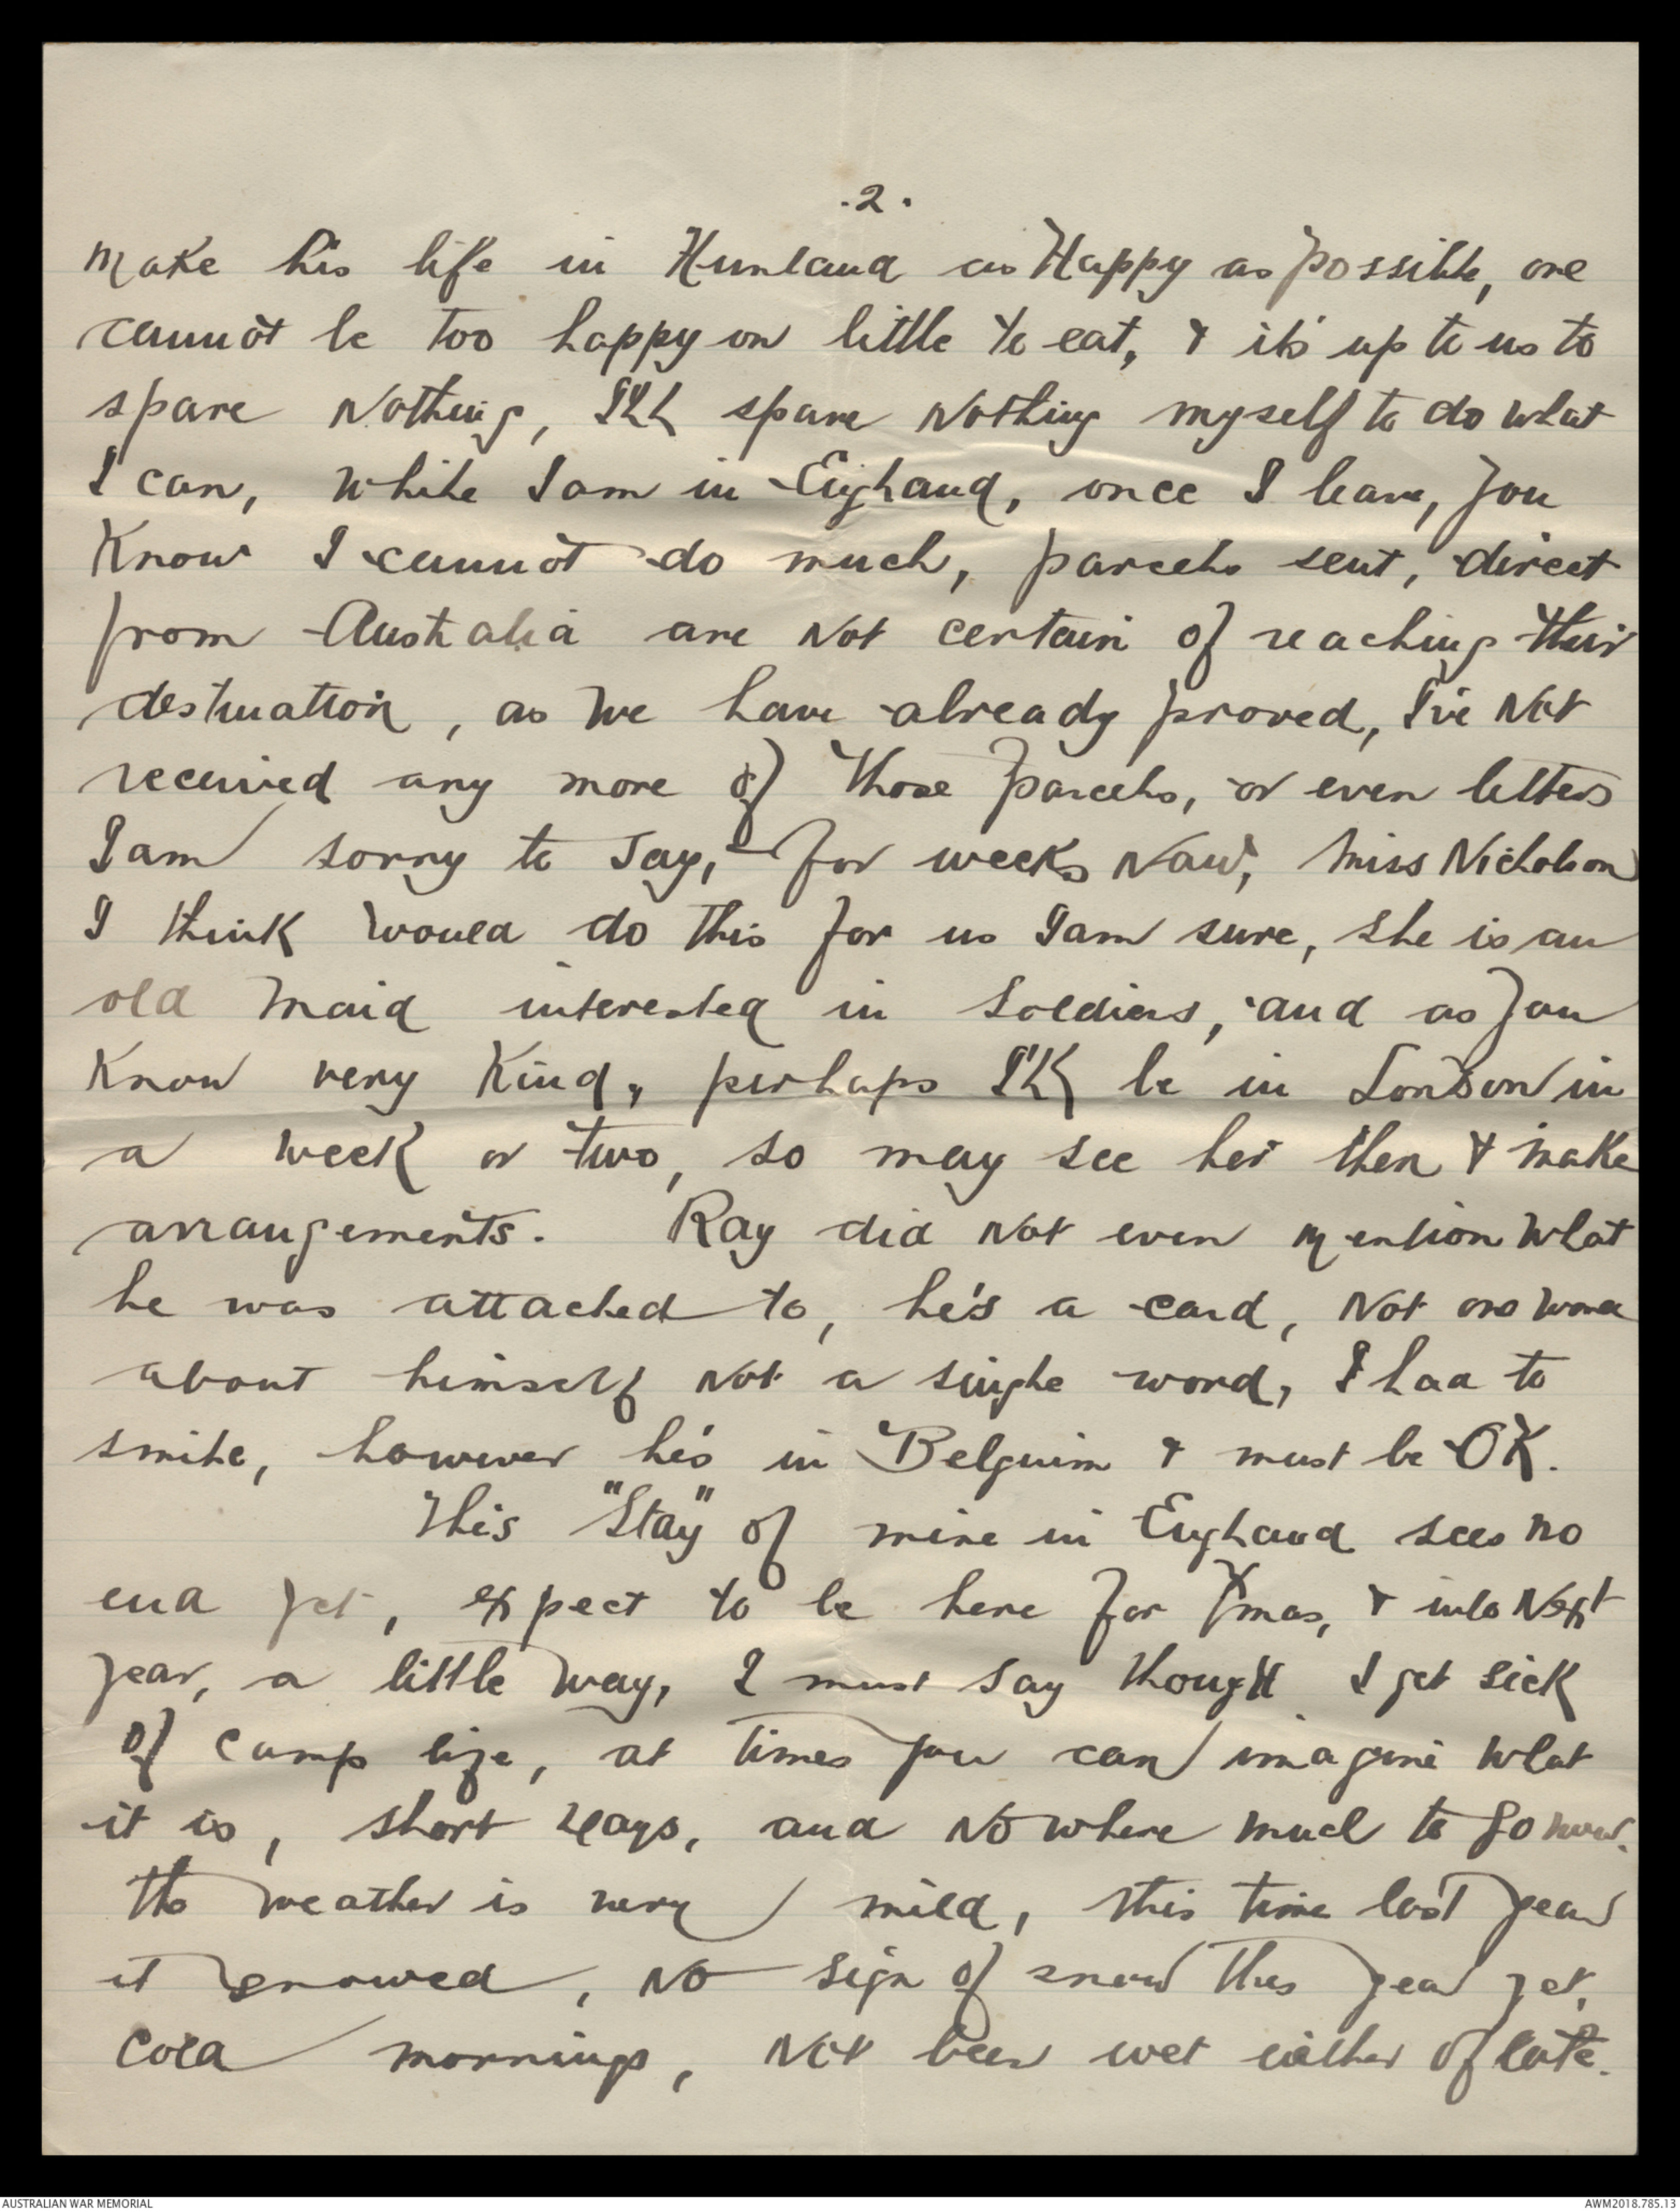 .2.
make his life in Hunland as Happy as possible, one
cannot be too happy on little to eat, & it's up to us to
spare Nothing, I'll spare Nothing myself to do what
I can, while I am in England, once I leave, you
Know I cannot do much, parcels sent, direct
from Australia are Not certain of reaching their
destination, as we have already proved, I've Not
received any more of those parcels, or even letters
I am sorry to say, for weeks Now, Miss Nicholson
I think would do this for us I am sure, she is an
old maid interested in Soldiers, and as you
Know very Kind, perhaps I'll be in London in
a week or two, so may see her then & make
arrangements. Ray did Not even mention what
he was attached to, he's a card, Not one word
about himself Not a single word, I had to
smile, however he's in Belguim & must be OK.
This "Stay" of mine in England sees no
end yet, expect to be here for Xmas, & into Next
year, a little way, I must say though I get sick
of camp life, at times you can imagine what
it is, short days, and No where much to go now.
The weather is very mild, this time last year
it snowed, No sign of snow this year yet,
Cold mornings, Not been wet either of late.
AUSTRALIAN WAR MEMORIAL
AWM2018.785.13